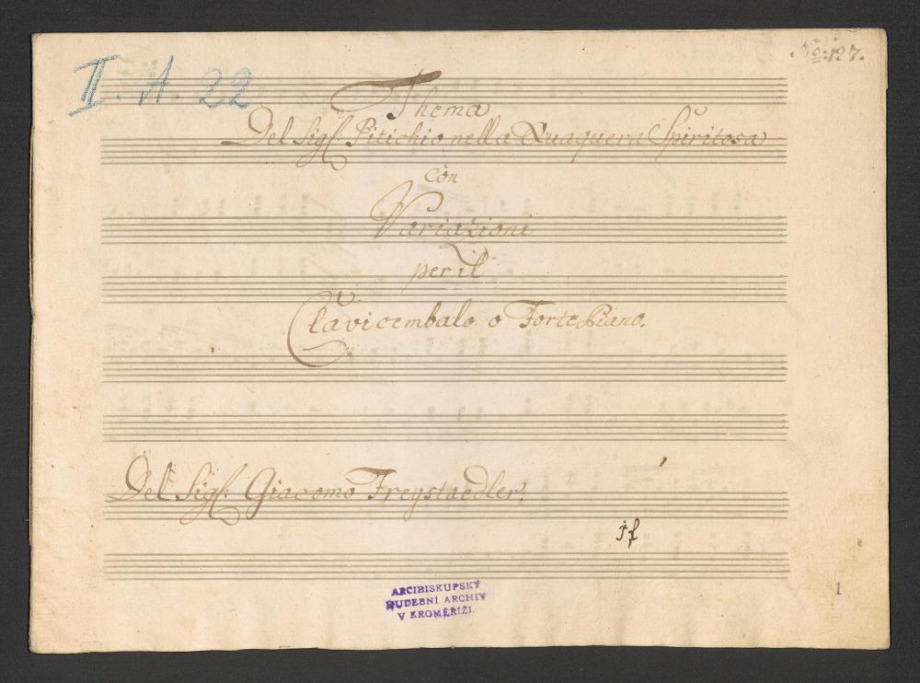 II. A. 22
No: 127.
Thema
Del Sigl: Pitichio nella Quaquera Spiritosa
con
Variazioni
per il
Clavicembalo o Forte Piano.
Del Sigl: Giacomo Freystaedler.
ARCIBISKUPSKÝ
HUDEBNÍ ARCHIV
V KROMĚŘÍŽI.
1